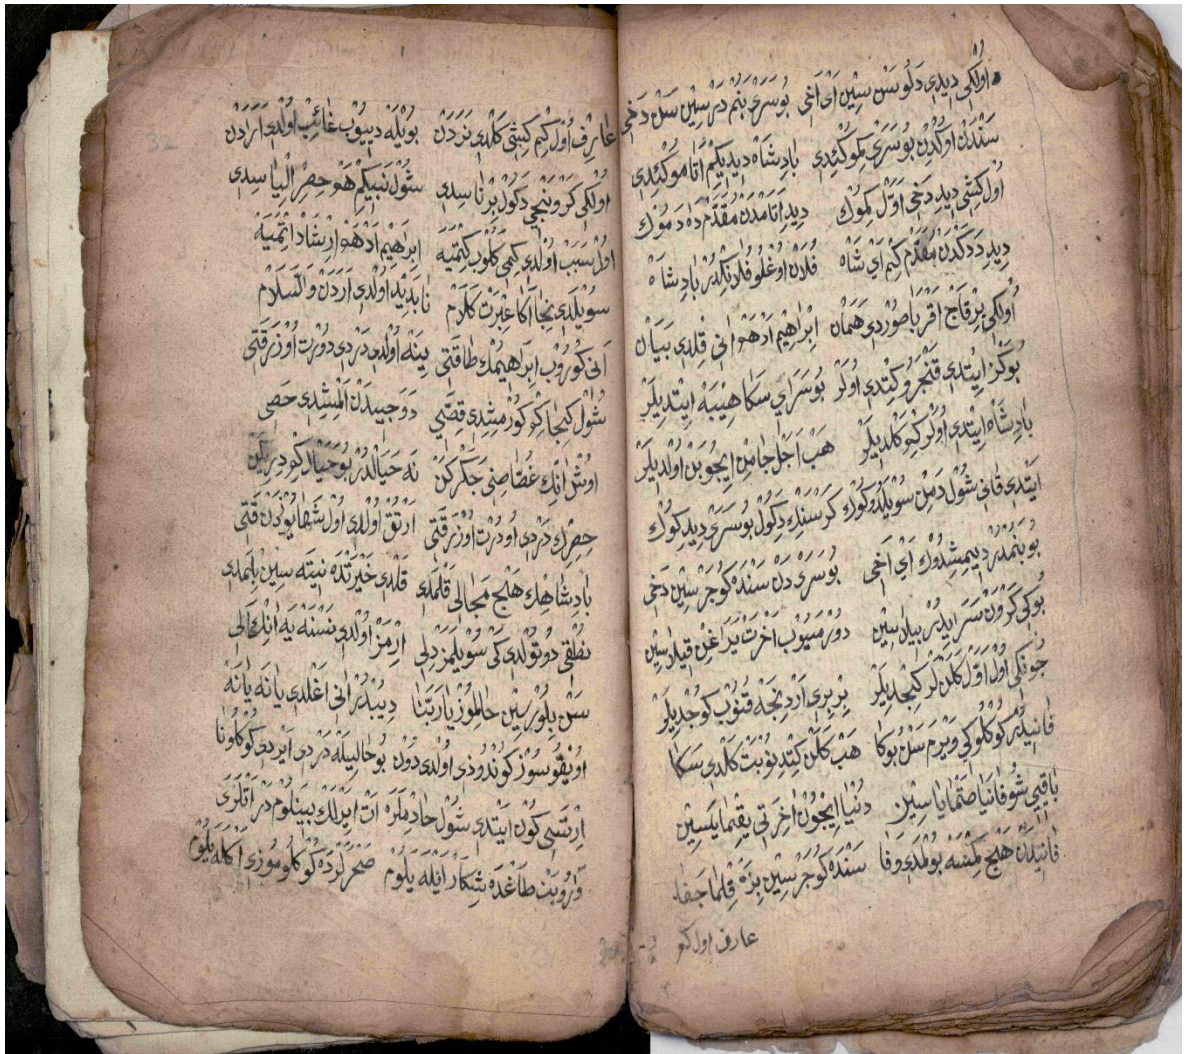 اولكی دیدی دلوسن سین ای اخی بو سرای بنم در سین سن دخی
سندن اولدن بو سرای كموكیدی پادشاه دیدیكم اتاموكیدی
اول كشی دیدی دخی اول كموك دیدی اتامدن مقدم ددموك
دیدی ددكدن مقدم كیم ای شاه فلان اوغلو فلانكدر پادشاه
اولكی بر قاج اقربا صوردی همان ابراهیم ادهم انی قلدی بیان
بوكز ایتدی قنجرو كیتدی اولر بو سرای سكا هیبه ایتدیلر
پادشاه ایتدی اولر كم كلدیلر هب اجل جامن ایچوبن اولدیلر
ایتدی قانی شول دمن سویلدوكوك كرسنك دكول بو سرای دیدكوك
بو بنمدر دیمشدوك ای اخی بو سرای دن سنده كوجرسین دخی
بوكی كرون سرایدر بیلاسین دورمیوب اخرت یراغن قیلاسین
چونكی اول اول كلنلر كیچدیلر بر بری اردنجه قنوب كوچدیلر
فانیدر كوكلوكی ویرم سن بوكا هب كلن كیتدی نوبت كلدی سكا
باقیی شو فانیا صتمایاسین دنیا ایچون اخرتی یقمایاسین
فانیدن هیچ كمسه بولمدی وفا سنده كوجرسین بزه قلما جفا
عارف اول كم
32
عارف اول كیم كیشی كلدی نردن بویله دییوب غائب اولدی ارادن
اولكی كروبنجی دكول بر ناسدی شول نبیكم هو حضر الیاسدی
اول سبب اولدی كمی كلوب كیتمیه ابراهیم ادهم ارشاد اتمیه
سویلدی نجا اكا عبرت كلام نابدید اولدی اردن والسلام
انی كوروب ابراهیمك طاقتی یینه اولدی دردی دورت اوزر قتی
شول كیجا كم كورمشدی قصیی دوجیبدن المشدی حصی
اوش انك غصاصنی چكركن نه حیالدر بو حیال كودركن
حضرك دردی اودرت اوزر قتی ارتق اولدی اول شها بونون قتی
پادشاهك هیچ مجالی قلمدی قلدی خیرتده نیته سین بلمدی
نطقی دوتولدی كی سویلمز دلی ارمز اولدی نسنه یه انك الی
سن بلورسین حالموز یا ربنا دیبدر انی اغلدی یانه یانه
اویقوسوز كوندوزی اولدی دون بو حالیله دردی ایردی كوكلونا
ارتسی كون ایتدی شول حادملره ات ایرلك بینلوم در اتلری
وروبن طاغده شكار ایله یلوم صحرلرده كوكلوموزی اكله یلوم